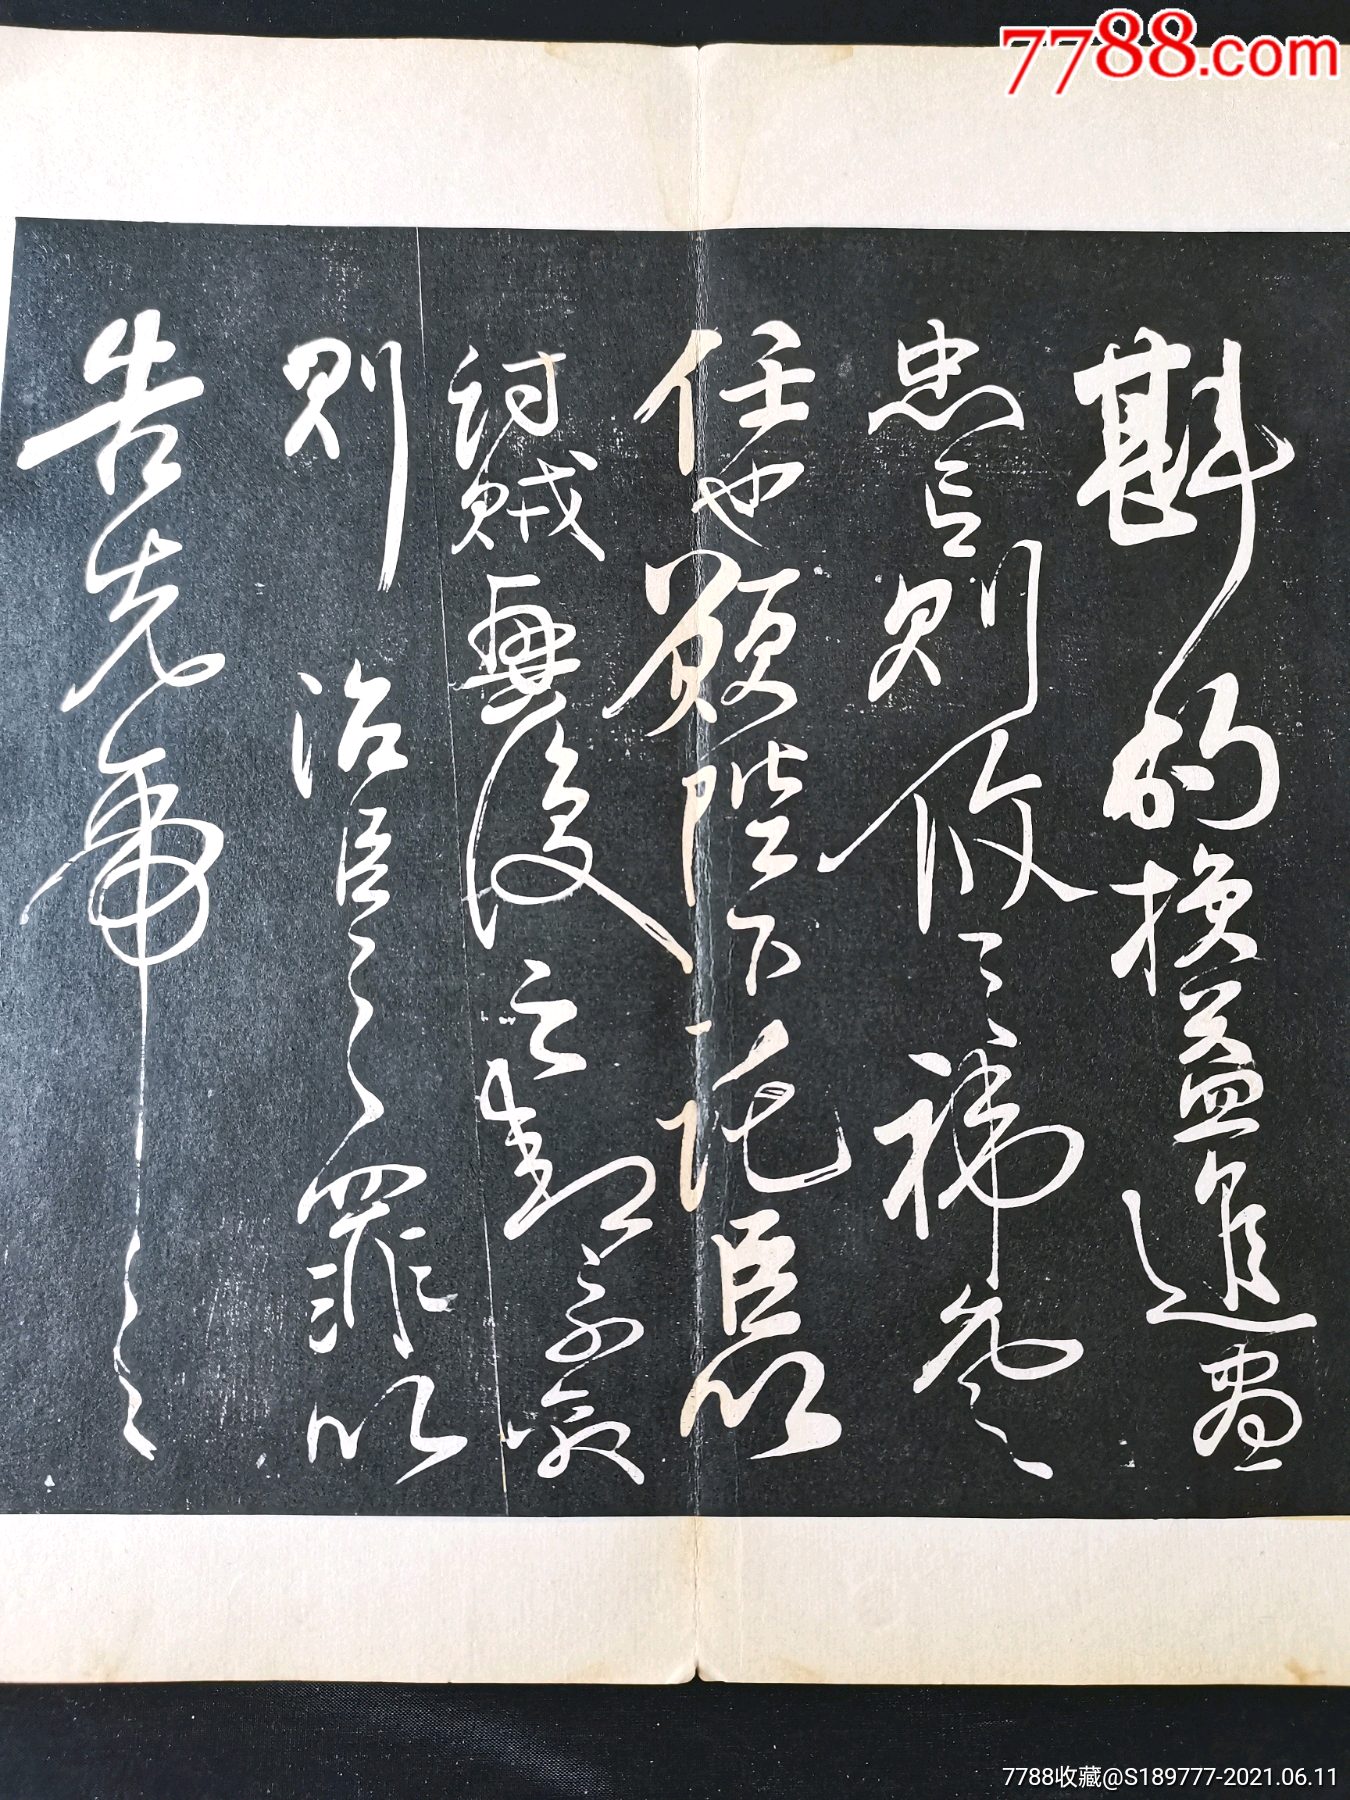 7788.com
斟酌損益進盡
忠言則攸之禕允之
任也願陛下託臣以
討賊興復之效不效
則治臣之罪以
告先帝之
7788收藏@S189777-2021.06.11